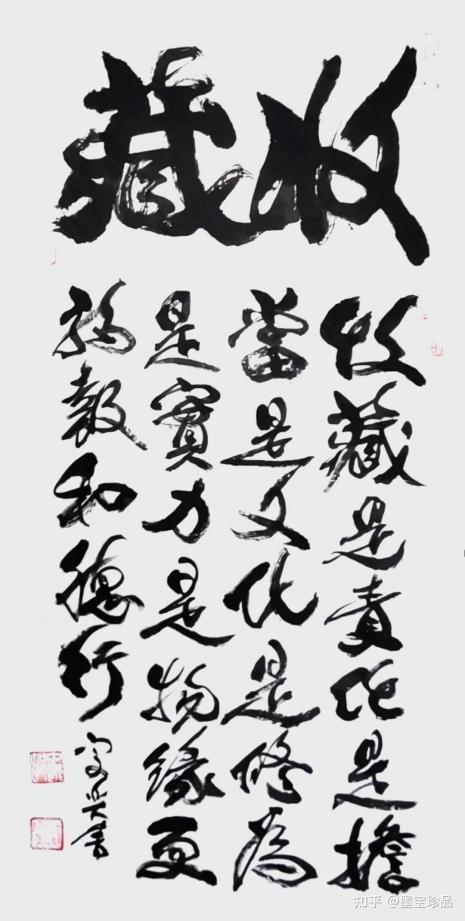 收藏
收藏是責任是擔
當是文化是修為
是實力是物緣更
和德行
書
知乎 @墨宝珍品